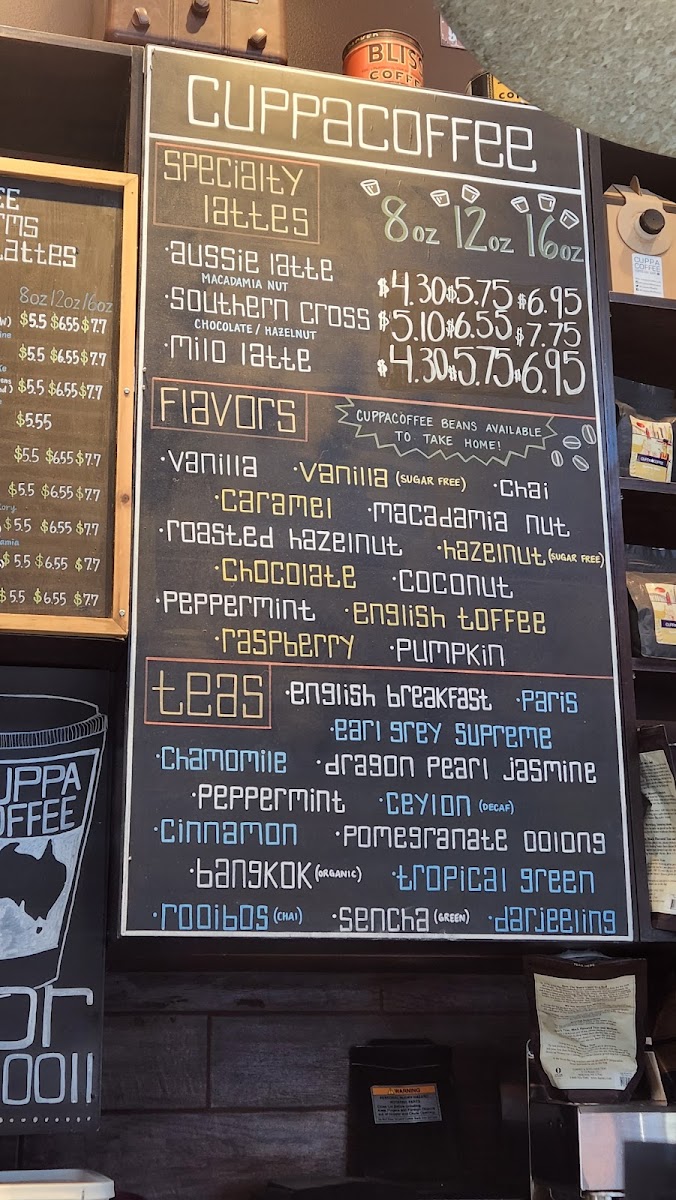 BLIS
COFF
CUPPACOFFEE
SPECIALTY
LATTES
8oz 12oz 16oz
·AUSSIE LATTE $4.30 $5.75 $6.95
MACADAMIA NUT
·SOUTHERN CROSS $5.10 $6.55 $7.75
CHOCOLATE / HAZELNUT
·MILO LATTE $4.30 $5.75 $6.95
FLAVORS
CUPPACOFFEE BEANS AVAILABLE
TO TAKE HOME!
·VANILLA ·VANILLA (SUGAR FREE) ·CHAI
·CARAMEL ·MACADAMIA NUT
·ROASTED HAZELNUT ·HAZELNUT (SUGAR FREE)
·CHOCOLATE ·COCONUT
·PEPPERMINT ·ENGLISH TOFFEE
·RASPBERRY ·PUMPKIN
TEAS
·ENGLISH BREAKFAST ·PARIS
·EARL GREY SUPREME
·CHAMOMILE ·DRAGON PEARL JASMINE
·PEPPERMINT ·CEYLON (DECAF)
·CINNAMON ·POMEGRANATE OOLONG
·BANGKOK (ORGANIC) ·TROPICAL GREEN
·ROOIBOS (CHAI) ·SENCHA (GREEN) ·DARJEELING
EE
RMS
LATTES
8oz 12oz 16oz
$5.5 $6.55 $7.7
$5.5 $6.55 $7.7
$5.5 $6.55 $7.7
$5.55
$5.5 $6.55 $7.7
$5.5 $6.55 $7.7
$5.5 $6.55 $7.7
$5.5 $6.55 $7.7
$5.5 $6.55 $7.7
UPPA
OFFEE
OR
OOII
CUPPA
COFFEE
WARNING